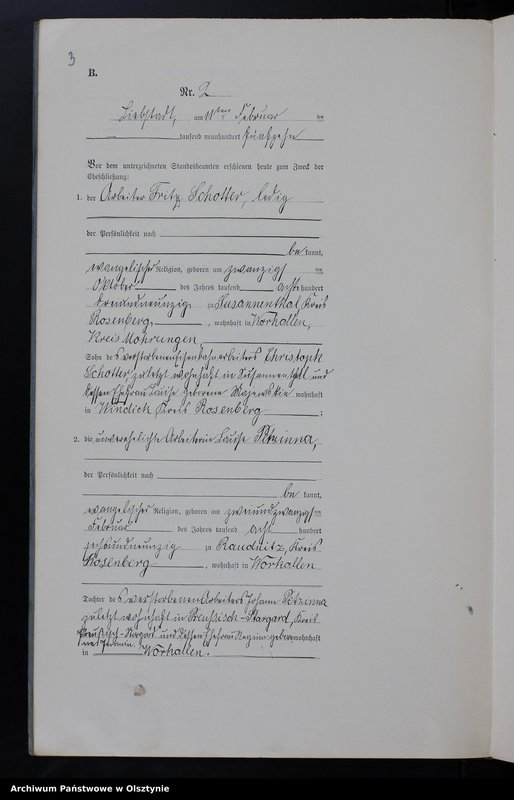 3
B.
Nr. 2
Liebstadt, am 11ten Februar ten
tausend neunhundert fünfzehn
Vor dem unterzeichneten Standesbeamten erschienen heute zum Zweck der
Eheschließung:
1. der Arbeiter Fritz Schotter, ledig
der Persönlichkeit nach
be kannt,
evangelischer Religion, geboren am zwanzigs ten
Oktober des Jahres tausend acht hundert
zu Susannenthal, Kreis
Rosenberg, wohnhaft in Workallen,
Kreis Mohrungen,
Sohn des verstorbenen Eisenbahnarbeiters Christoph
Schotter zuletzt wohnhaft in Susannenthal und
dessen Ehefrau Louise geborene wohnhaft
in Windick Kreis Rosenberg ;
2. die unverehelichte Arbeiterin Louise Petrinna,
der Persönlichkeit nach
be kannt,
evangelischer Religion, geboren am zweiundzwanzigs ten
Februar des Jahres tausend acht hundert
sechsundneunzig zu Raudnitz, Kreis
Rosenberg, wohnhaft in Workallen
Tochter des verstorbenen Arbeiters Johann Petrinna
zuletzt wohnhaft in Preußisch-Stargard, Kreis
Preußisch-Stargard und dessen Ehefrau Regine geborene wohnhaft
in Workallen.
Archiwum Państwowe w Olsztynie